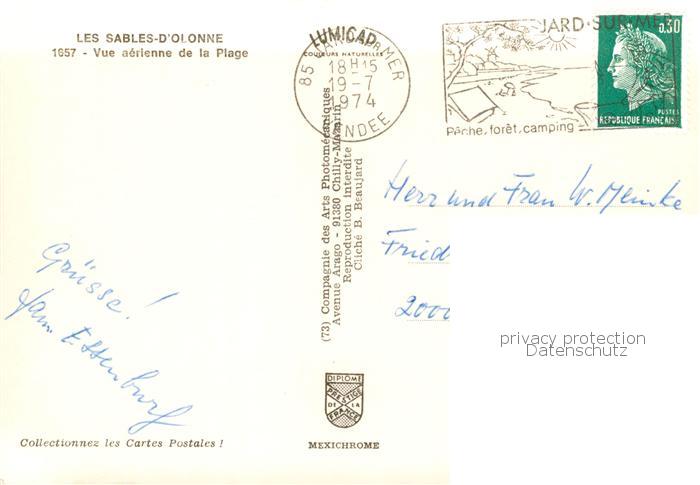 LES SABLES-D'OLONNE
1657 - Vue aérienne de la Plage
LUMICAP
COULEURS NATURELLES
85 JARD-SUR-MER
18H15
19-7
1974
VENDEE
JARD-SUR-MER
Pêche, forêt, camping
0,30
POSTES
REPUBLIQUE FRANÇAISE
(73) Compagnie des Arts Photomécaniques
Avenue Arago - 91380 Chilly-Mazarin
Reproduction Interdite
Cliché B. Beaujard
Herr und Frau W. Meinke
Fried
2000
Grüsse!
Fam. Essenburg
privacy protection
Datenschutz
DIPLOME
PRESTIGE
DE LA
FRANCE
Collectionnez les Cartes Postales !
MEXICHROME